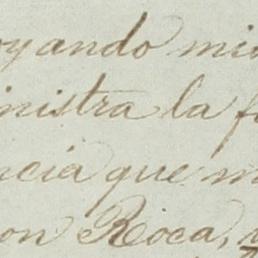 oyando mi
nistra la f
ncia que m
on Rioca,